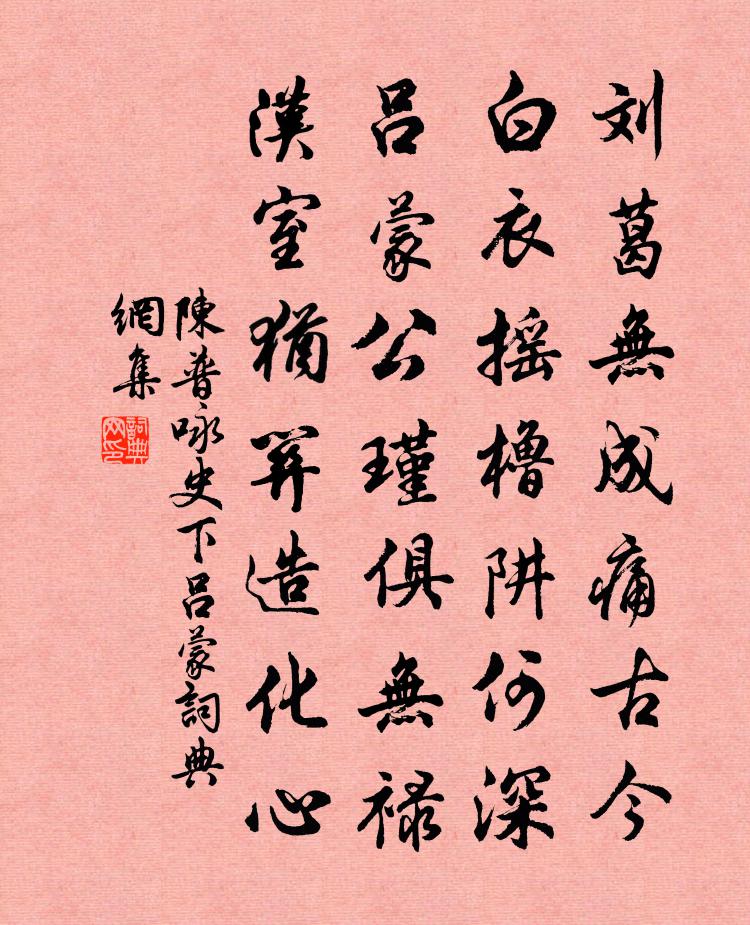 刘葛無成痛古今
白衣摇櫓阱何深
吕蒙公瑾俱無禄
漢室猶筭造化心
陳普咏史下吕蒙詞典
網集
詞典
网印